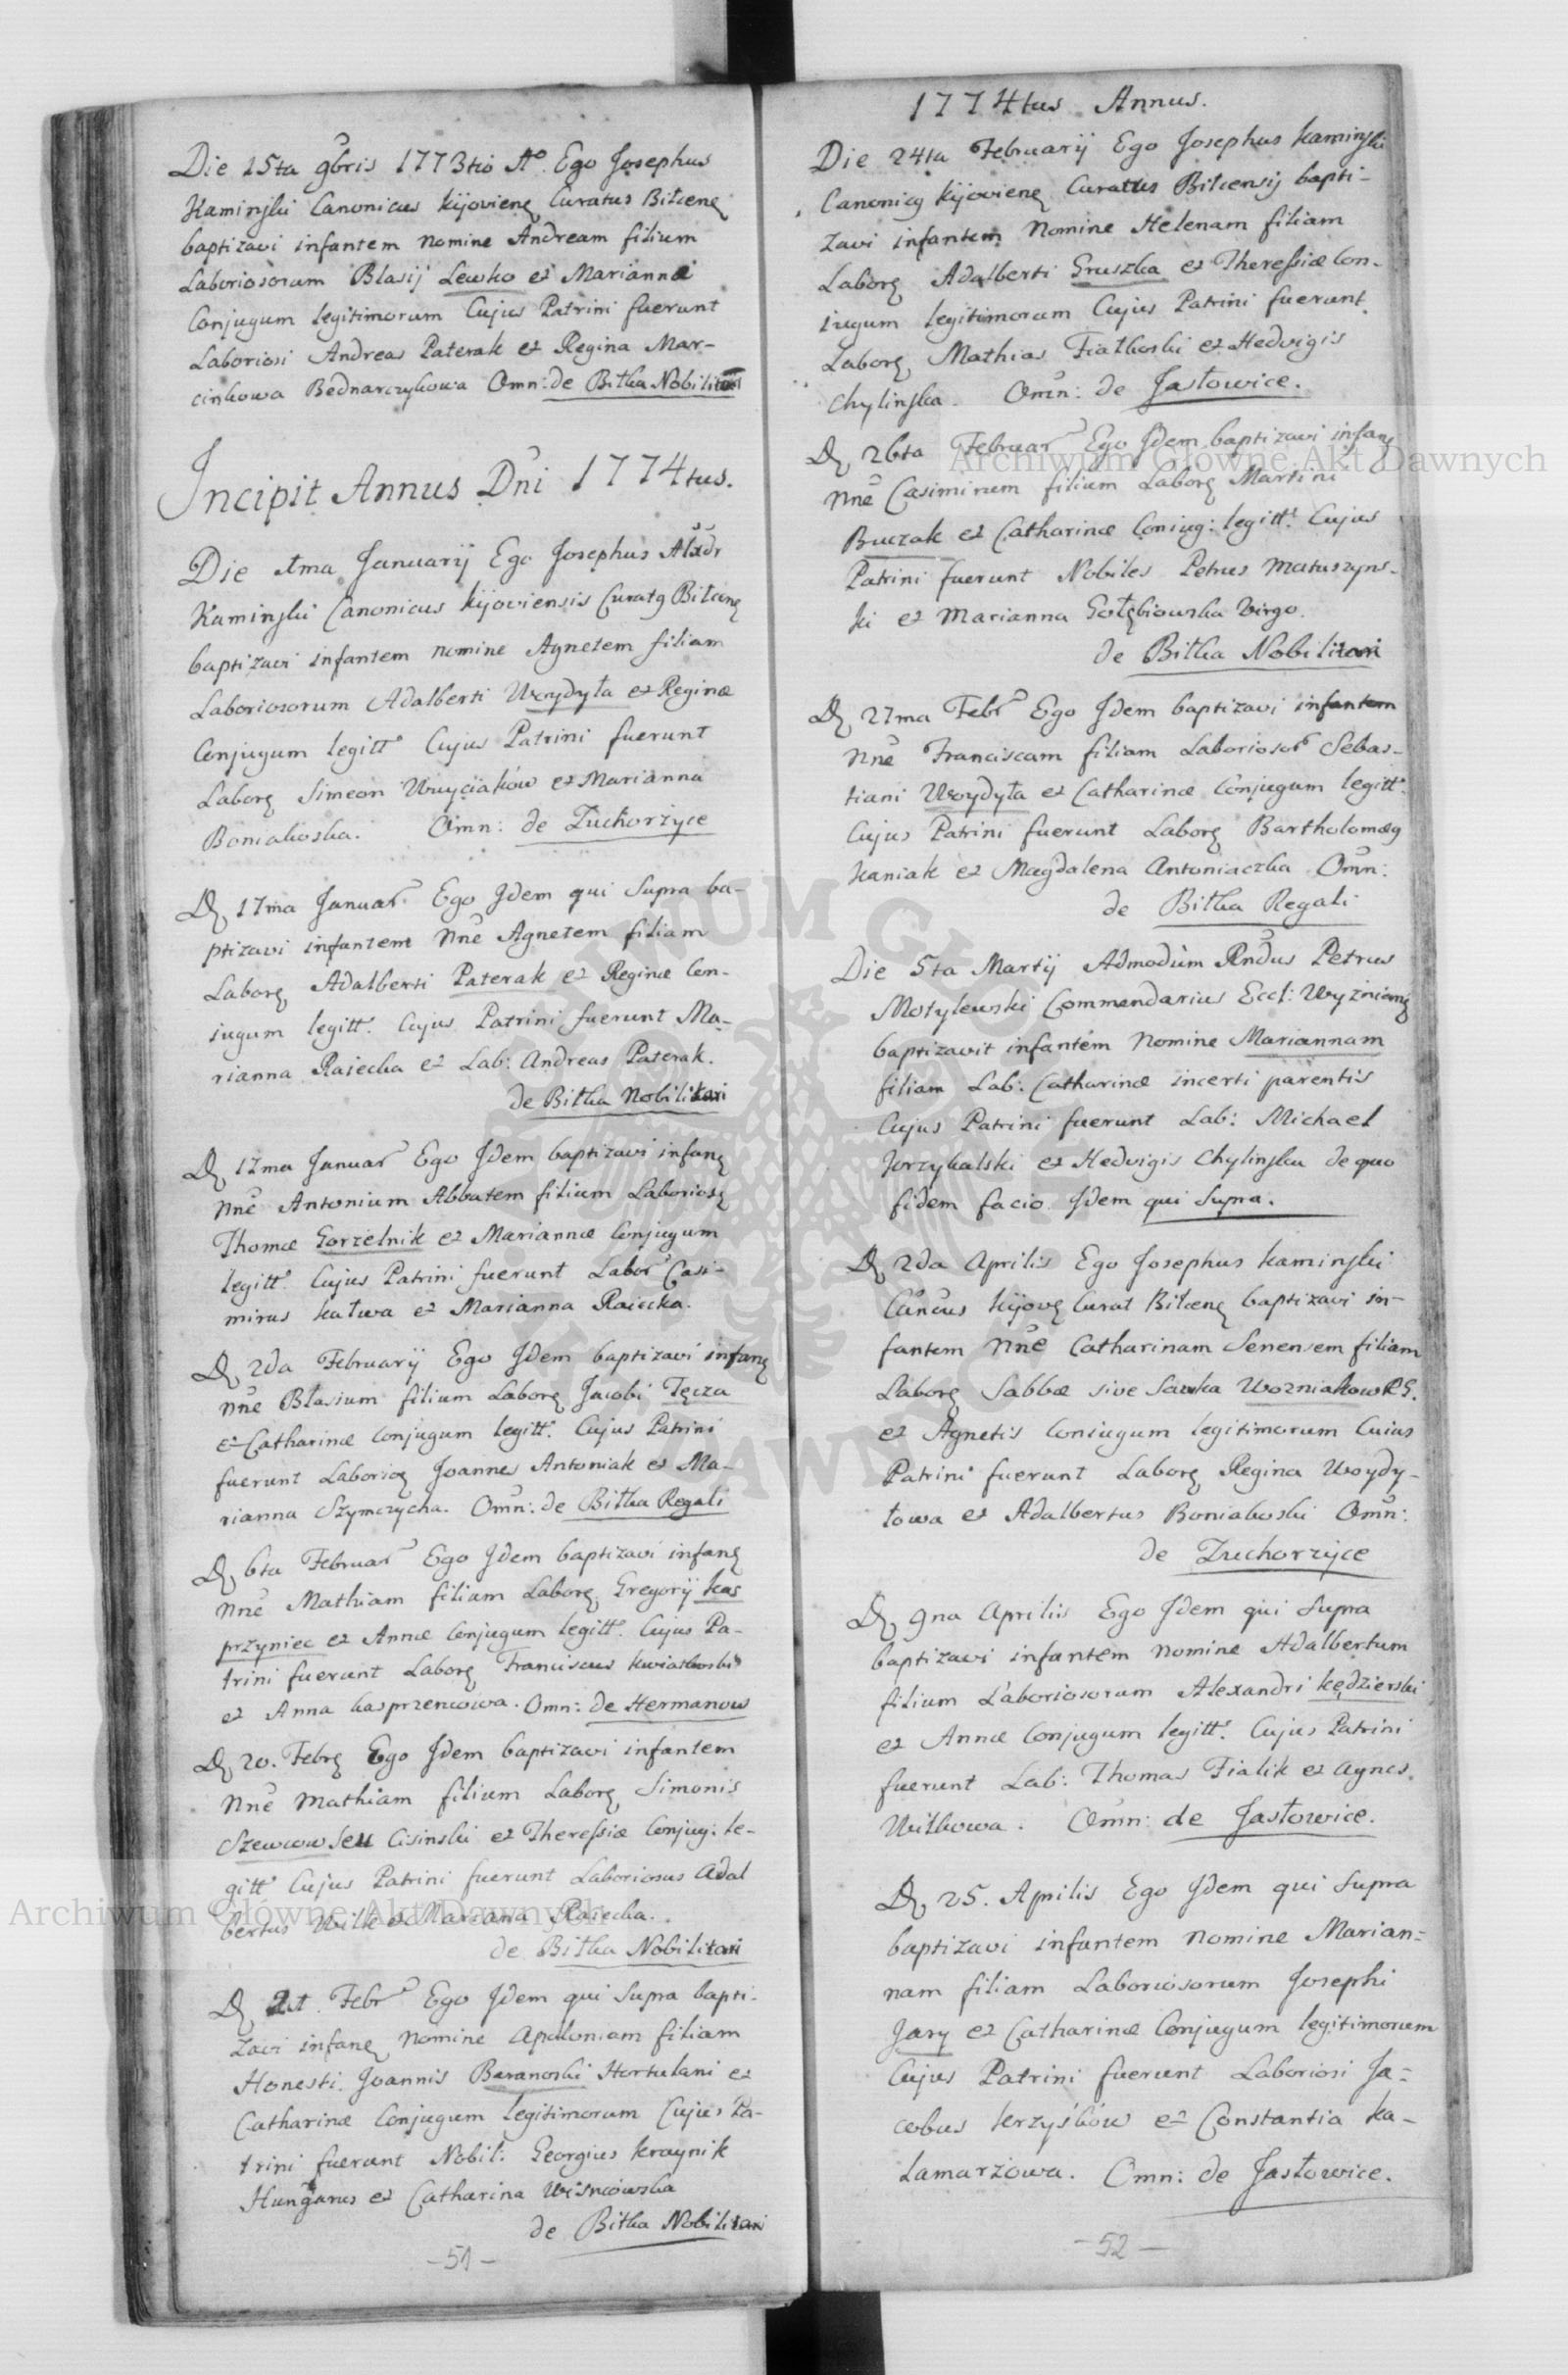 Die 15ta 9bris 1773tio Ao. Ego Josephus
Kaminski Canonicus Kijovien Curatus Bilcen
baptizavi infantem nomine Andream filium
Laboriosorum Blasij Lewko et Mariannæ
Conjugum legitimorum Cujus Patrini fuerunt
Laboriosi Andreas Paterak et Regina Mar-
cinkowa Bednarczykowa Omn: de Biłka Nobilitari
Incipit Annus Dni 1774tus.
Die 1ma Januarij Ego Josephus Alxdr
Kaminski Canonicus Kijoviensis Curatg Bilcen
baptizavi infantem nomine Agnetem filiam
Laboriosorum Adalberti Woydyła et Reginæ
Conjugum legitt. Cujus Patrini fuerunt
Labor Simeon Wuyciaków et Marianna
Boniakoska. Omn: de Zuchorzyce
D 17ma Januar Ego Jdem qui Supra ba-
ptizavi infantem Nne Agnetem filiam
Labor Adalberti Paterak et Reginæ Con-
jugum legitt. Cujus Patrini fuerunt Ma-
rianna Raiecka et Lab: Andreas Paterak.
de Biłka Nobilitari
D 17ma Januar Ego Jdem baptizavi infan
Nne Antonium Abbatem filium Laborios
Thomæ Gorzelnik et Mariannæ Conjugum
legitt. Cujus Patrini fuerunt Labor Casi-
mirus Kaława et Marianna Raiecka.
D 2da Februarij Ego Jdem baptizavi infan
Nne Blasium filium Labor Jacobi Tęcza
et Catharinæ Conjugum legitt. Cujus Patrini
fuerunt Laborios Joannes Antoniak et Ma-
rianna Szymczycha. Omn: de Biłka Regali
D 6ta Februar Ego Jdem baptizavi infan
Nne Mathiam filiam Labor Gregorij Kas
przyniec et Annæ Conjugum legitt. Cujus Pa-
trini fuerunt Labor Franciscus Kwiatkoski
et Anna Kasprzencowa. Omn: de Hermanow
D 20. Febr Ego Jdem baptizavi infantem
Nne Mathiam filium Labor Simonis
Szewcow seu Cisinski et Theressiæ Conjug: le-
gitt. Cujus Patrini fuerunt Laboriosus Adal
bertus Wilk et Mariana Raiecka.
de Biłka Nobilitari
D 21. Febr Ego Jdem qui Supra bapti-
zavi infan nomine Apoloniam filiam
Honesti Joannis Baranoski Hortulani et
Catharinæ Conjugum legitimorum Cujus Pa-
trini fuerunt Nobil: Georgius Kraynik
Hungarus et Catharina Wisniowska
de Biłka Nobilitari
-51-
1774tus Annus.
Die 24ta Februarij Ego Josephus Kaminski
Canonicg Kijovien Curatus Bilcensis bapti-
zavi infantem Nomine Helenam filiam
Labor Adalberti Gruszka et Theressiæ Con-
jugum legitimorum Cujus Patrini fuerunt
Labor Mathias Fiałkoski et Hedvigis
Chylinska. Omn: de Jasłowice.
D 26ta Februar Ego Jdem baptizavi infan
Nne Casimirum filium Labor Martini
Buczak et Catharinæ Coniug: legitt. Cujus
Patrini fuerunt Nobiles Petrus Matuszyns-
ki et Marianna Gołębiowska Virgo.
de Biłka Nobilitari
D 27ma Febr Ego Jdem baptizavi infantem
Nne Franciscam filiam Laboriosor Sebas-
tiani Woydyła et Catharinæ Conjugum legitt.
Cujus Patrini fuerunt Labor Bartholomæg
Kaniak et Magdalena Antoniaczka Omn:
de Biłka Regali
Die 5ta Martij Admodum Rndus Petrus
Motylewski Commendarius Eccl: Wyżnian
baptizavit infantem Nomine Mariannam
filiam Lab: Catharinæ incerti parentis
Cujus Patrini fuerunt Lab: Michael
Jorzykalski et Hedvigis Chylinska de quo
fidem facio Jdem qui Supra.
D 2da Aprilis Ego Josephus Kaminski
Cancus Kijov Curat Bilcen baptizavi in-
fantem Nne Catharinam Senensem filiam
Labor Sabbæ sive Sawka Wozniakow RG.
et Agnetis Coniugum legitimorum Cuius
Patrini fuerunt Labor Regina Woydy-
łowa et Adalbertus Boniakoski Omn:
de Zuchorzyce
D 9na Aprilis Ego Jdem qui Supra
baptizavi infantem nomine Adalbertum
filium Laboriosorum Alexandri Kędzierski
et Annæ Conjugum legitt. Cujus Patrini
fuerunt Lab: Thomas Fialik et Agnes
Wilkowa. Omn: de Jasłowice.
D 25. Aprilis Ego Jdem qui Supra
baptizavi infantem nomine Marian=
nam filiam Laboriosorum Josephi
Jary et Catharinæ Conjugum legitimorum
Cujus Patrini fuerunt Laboriosi Ja=
cobus Krzyśków et Constantia Ka-
łamarzowa. Omn: de Jasłowice.
-52-
Archiwum Główne Akt Dawnych
Archiwum Główne Akt Dawnych